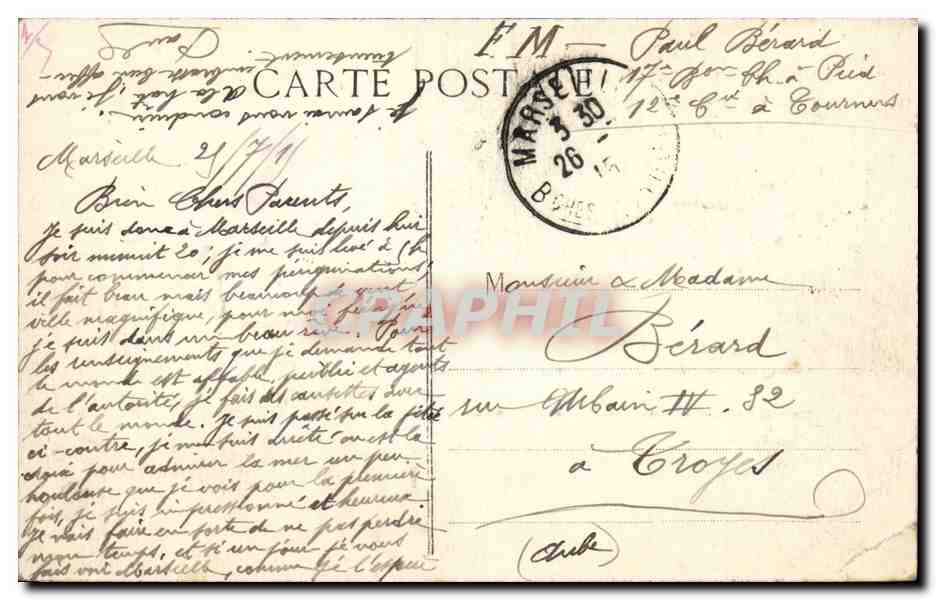 F M -
Paul Bérard
17e Bon Ch. à Pied
12e Cie à Tournus
CARTE POSTALE
MARSEILLE
3 30
26
BCHES
Marseille 25/7/15
Bien Chers Parents,
Je suis donc à Marseille depuis hier
soir minuit 20; je me suis levé à 6h
pour commencer mes pérégrinations,
il fait beau mais beaucoup de vent
ville magnifique, pour moi
je suis dans un beau rêve. Pour
les renseignements que je demande tout
le monde est affable, public et agents
de l'autorité, je fais des causettes avec
tout le monde. Je suis passé sur la jetée
ci-contre, je me suis arrêté où est la
croix pour admirer la mer un peu
houleuse que je vois pour la première
fois, je suis impressionné et heureux
Je vais faire en sorte de ne pas perdre
mon temps, et si un jour je vous
fais voir Marseille, comme je l'espère
Je saurai vous conduire.
A la hâte, je vous
embrasse bien affec-
tueusement.
Paul
Monsieur & Madame
Bérard
rue Urbain IV. 82
à Troyes
(Aube)
CPAPHIL